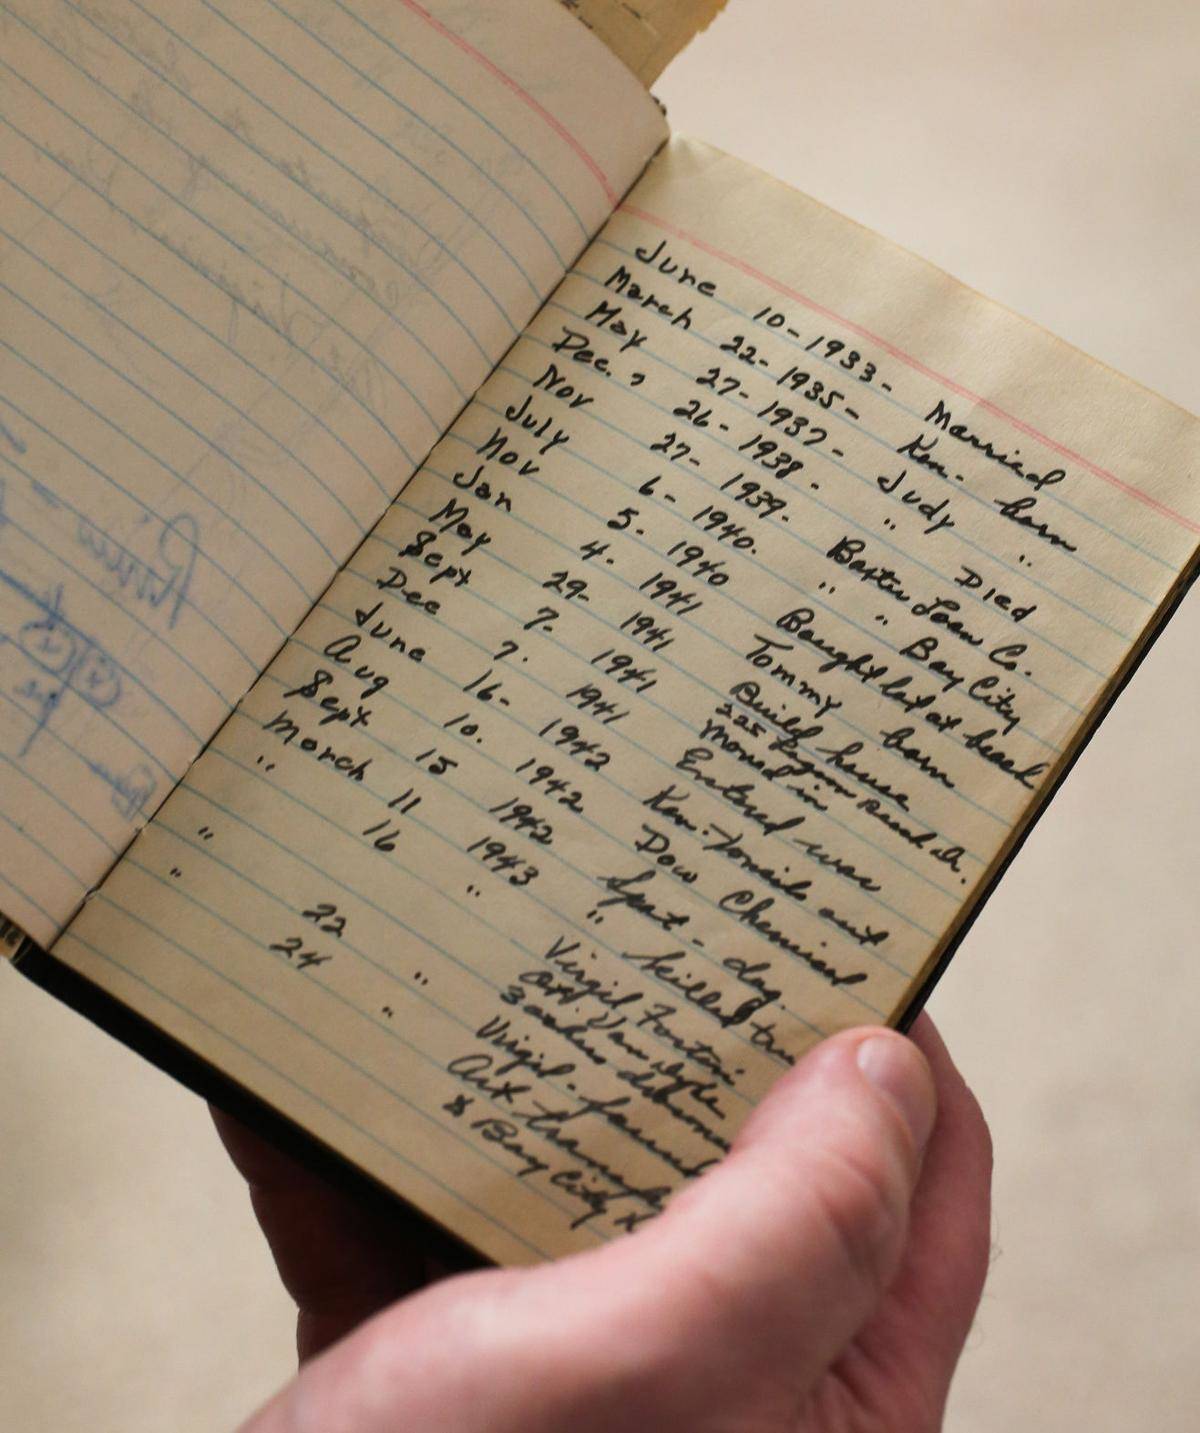 June 10-1933- Married
March 22-1935- Ken. born
May 27-1937- Judy "
Dec., 26-1938. " Died
Nov 27-1939. Baxter Loan Co.
July 6-1940. " " Bay City
Nov 5. 1940 Bought lot at beach
Jan 4. 1941 Tommy born
May 29- 1941 Build house
Sept 7. 1941 225 Lagoon Beach Dr.
moved in
Dec 7. 1941 Entered war
June 16- 1942 Ken. Tonsils out
Aug 10. 1942 Dow Chemical
Sept 15 1942 Spot - dog.
March 11 1943 " killed
" 16 " Virgil
3
" 22 " Virgil - found
" 24 " Art
& Bay City